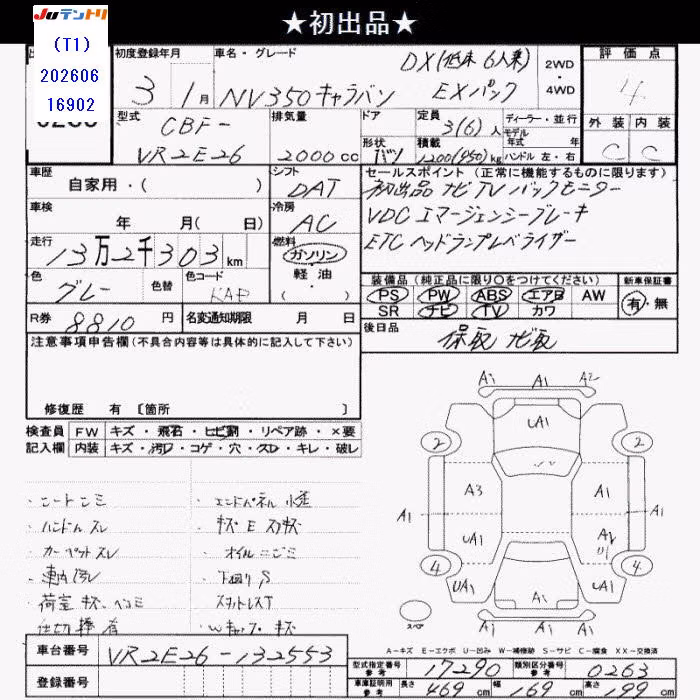 ★初出品★
JUテントリ
(T1)
202606
16902
初度登録年月
3 1月
車名・グレード
NV350キャラバン
DX(低床 6人乗)
EXパック
2WD
・
4WD
評価点
4
外装 内装
C C
型式
CBF-
VR2E26
排気量
2000cc
ドア
形状
バン
定員
3(6)人
積載
1200(950)kg
ディーラー・並行
モデル
年式 年
ハンドル 左・右
車歴
自家用・( )
シフト
DAT
車検
年 月( 日)
冷房
AC
走行
13万2千303km
燃料
ガソリン
軽油
・
( )
色
グレー
色替
色コード
KAD
R券
8810円
名変通知期限 月 日
セールスポイント(正常に機能するものに限ります)
初出品 ナビ TV バックモニター
VDC エマージェンシーブレーキ
ETC ヘッドランプレベライザー
装備品(純正品に限り○をつけてください)
新車保証書
PS PW ABS エアB AW
SR ナビ TV カワ
有・無
後日品
保取 ナビ取
注意事項申告欄(不具合内容等は具体的に記入して下さい)
修復歴 有 [箇所 ]
検査員
記入欄
FW キズ・飛石・ヒビ割・リペア跡・×要
内装 キズ・汚レ・コゲ・穴・スレ・キレ・破レ
・シートシミ
・ハンドルスレ
・カーペットスレ
・車内汚レ
・荷室 キズ・ヘコミ
・仕切棒有
・エンドパネル 小歪
・キズ E スリキズ
・オイルニジミ
・下回りS
・スタッドレスT
・Wキャップ キズ
A1 A1 A2
UA1
2 2
A3 A1
A1 A1
UA1 A2
U1
4 4
UA1 A1 UA1
A1 A1 A1
スペア
A-キズ E-エクボ U-凹み W-補修跡 S-サビ C-腐食 XX-交換済
車台番号
VR2E26-132553
登録番号
型式指定番号
参考
17290
類別区分番号
参考
0263
車庫証明用
参考
長さ 469cm 幅 169cm 高さ 199cm